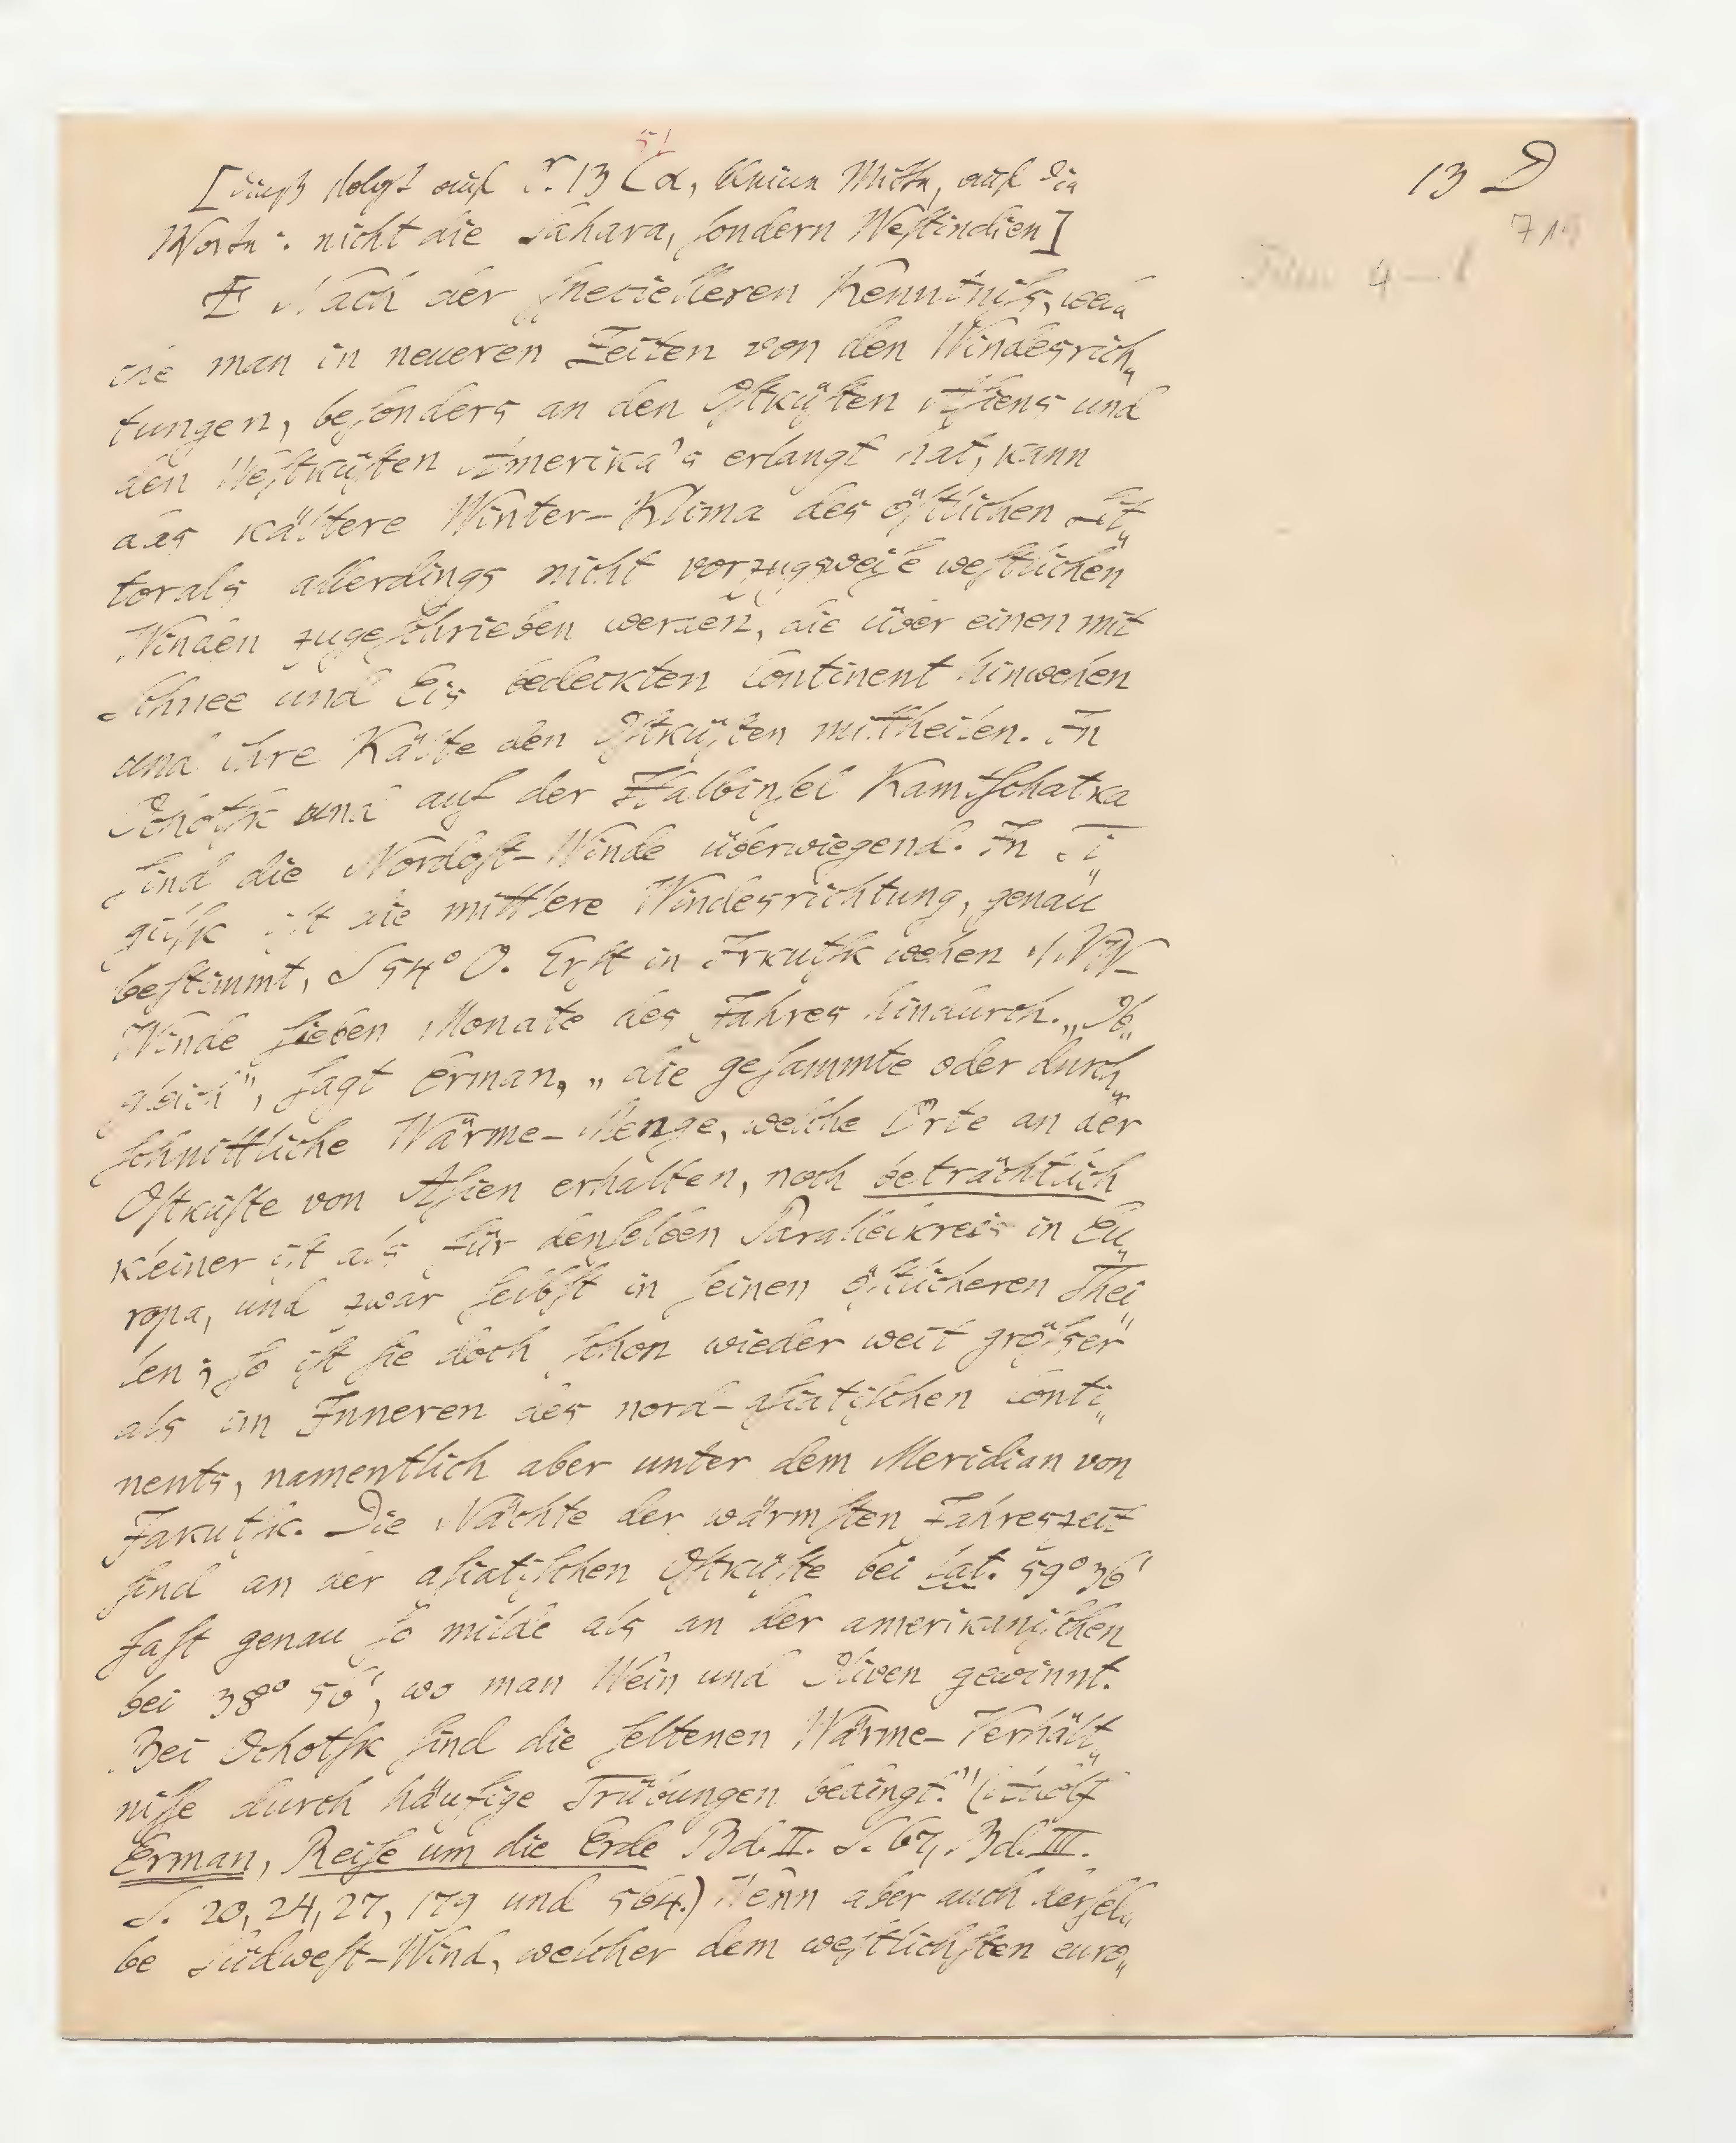 13 D
[dieß folgt auf S. 13 Cα, Mitte, auf die
Worte: nicht die Sahara, ſondern Weſtindien]
Nach der ſpecielleren Kenntniſs, wel„
che man in neueren Zeiten von den Windesrich„
tungen, beſonders an den Oſtküſten Aſiens und
den Weſtküſten Amerika's erlangt hat, kann
das kältere Winter-Klima des öſtlichen Lit„
torals allerdings nicht vorzugsweiſe weſtlichen
Winden zugeſchrieben werden, die über einen mit
Schnee und Eis bedeckten Continent hinwehen
und ihre Kälte den Oſtküſten mittheilen. In
Ochotſk und auf der Halbinſel Kamtſchatka
ſind die Nordoſt-Winde überwiegend. In Ti„
gilſk iſt die mittlere Windesrichtung, genau
beſtimmt, S 54° O. Erſt in Irkutſk wehen NNW-
Winde ſieben Monate des Jahres hindurch. „Ob„
gleich", ſagt Erman, „die geſammte oder durch„
ſchnittliche Wärme-Menge, welche Orte an der
Oſtküſte von Aſien erhalten, noch beträchtlich
kleiner iſt als für denſelben Parallelkreis in Eu„
ropa, und zwar ſelbſt in ſeinen öſtlicheren Thei„
len; ſo iſt ſie doch ſchon wieder weit gröſser
als im Inneren des nord-aſiatiſchen Conti„
nents, namentlich aber unter dem Meridian von
Jakutſk. Die Nächte der wärmſten Jahreszeit
ſind an der aſiatiſchen Oſtküſte bei Lat. 59° 36'
faſt genau ſo milde als an der amerikaniſchen
bei 38° 56', wo man Wein und Oliven gewinnt.
Bei Ochotſk ſind die ſeltenen Wärme-Verhält„
niſſe durch häufige Trübungen bedingt." (Adolf
Erman, Reiſe um die Erde Bd. II. S. 67, Bd. III.
S. 20, 24, 27, 179 und 564.) Wenn aber auch derſel„
be Südweſt-Wind, welcher dem weſtlichſten euro„